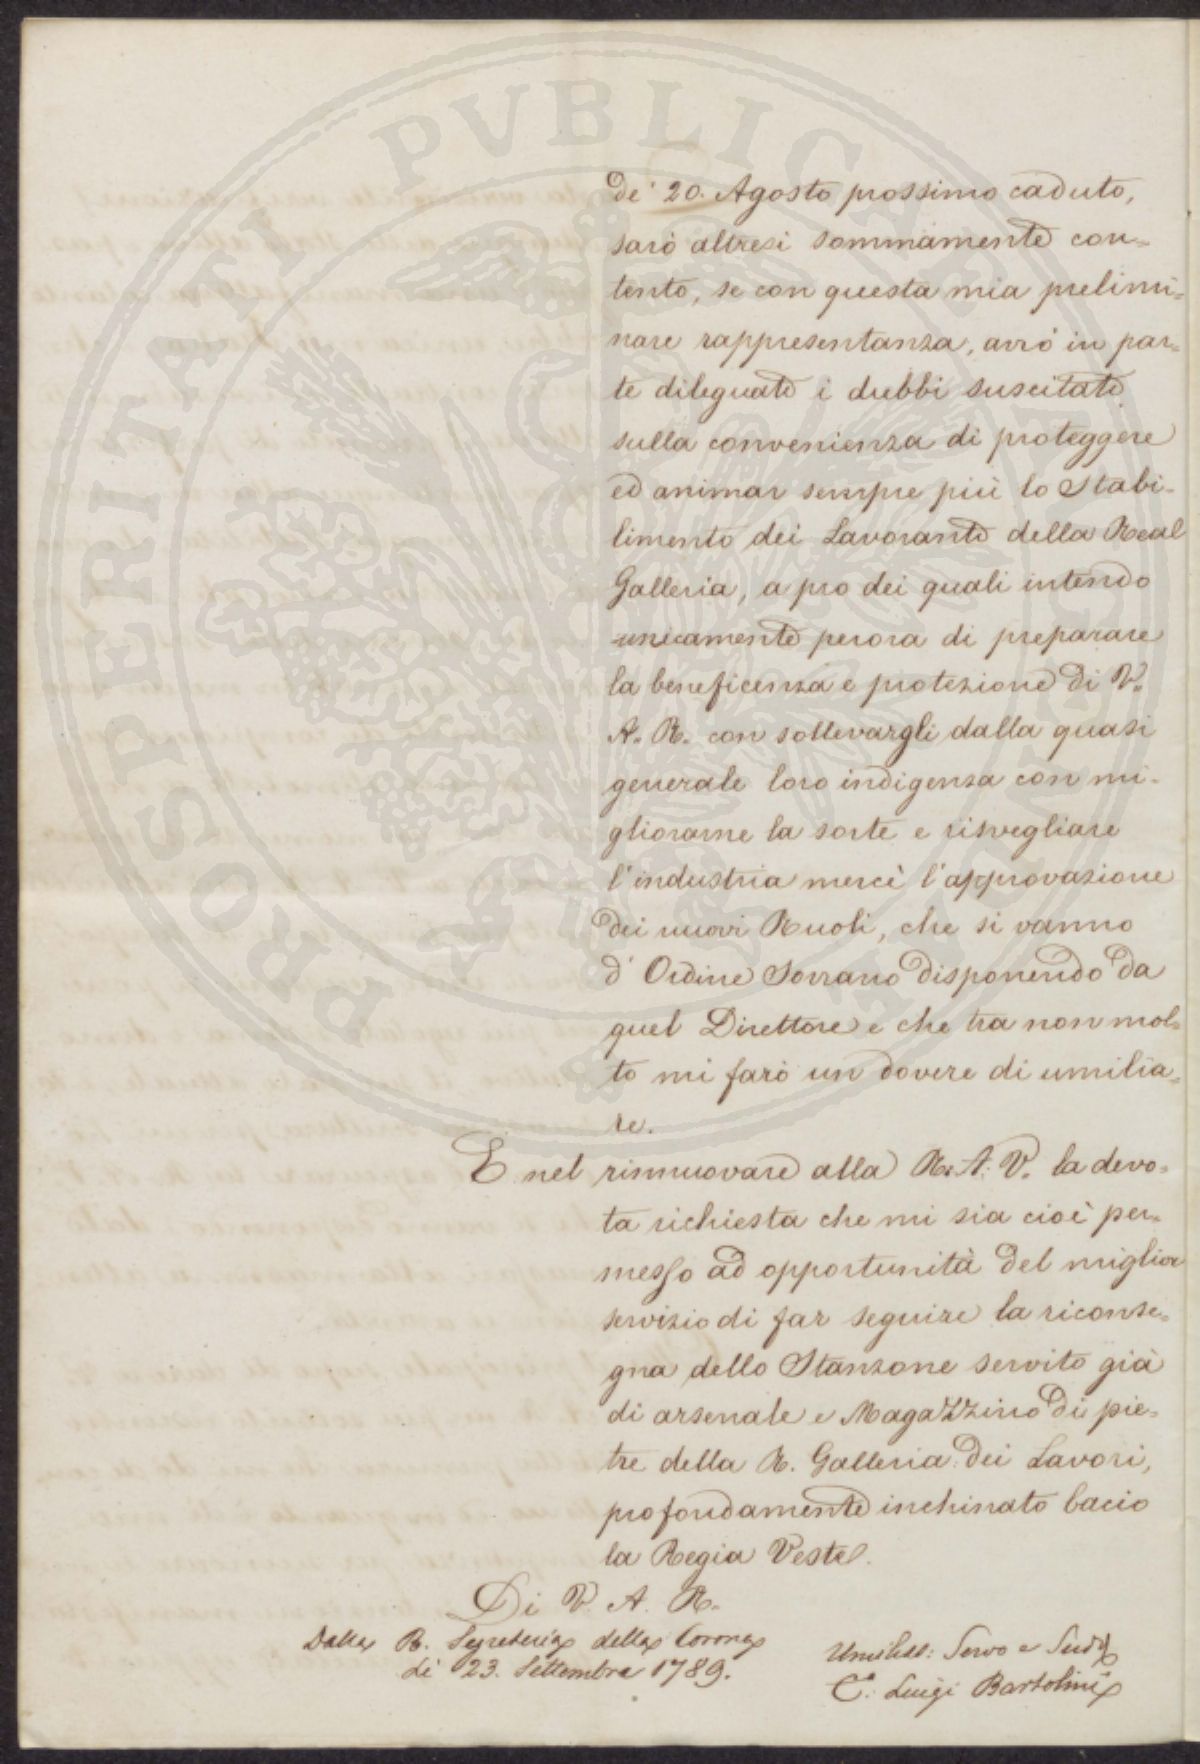 PROSPERITATI PVBLICAE AVGENDAE
de' 20. Agosto prossimo caduto,
sarò altresi sommamente con=
tento, se con questa mia prelimi=
nare rappresentanza, avrò in par=
te dileguate i dubbi suscitate
sulla convenienza di proteggere
ed animar sempre più lo Stabi-
limento dei Lavorante della Real
Galleria, a pro dei quali intendo
unicamente perora di preparare
la beneficenza e protezione di V.
A. R. con sollevargli dalla quasi
generale loro indigenza con mi-
gliorarne la sorte e risvegliare
l'industria mercè l'approvazione
dei nuovi Ruoli, che si vanno
d' Ordine Sovrano disponendo da
quel Direttore e che tra non mol=
to mi farò un dovere di umilia=
re.
E nel rinnuovare alla R. A. V. la devo=
ta richiesta che mi sia cioè per=
messo ad opportunità del miglior
servizio di far seguire la riconse=
gna dello Stanzone servito già
di arsenale e Magazzino di pie=
tre della R. Galleria dei Lavori,
profondamente inchinato bacio
la Regia Veste.
Di V. A. R.
Dalla R. Segreteria della Corona
Li 23. Settembre 1789.
Umiliss: Servo e Sudd
C. Luigi Bartolini